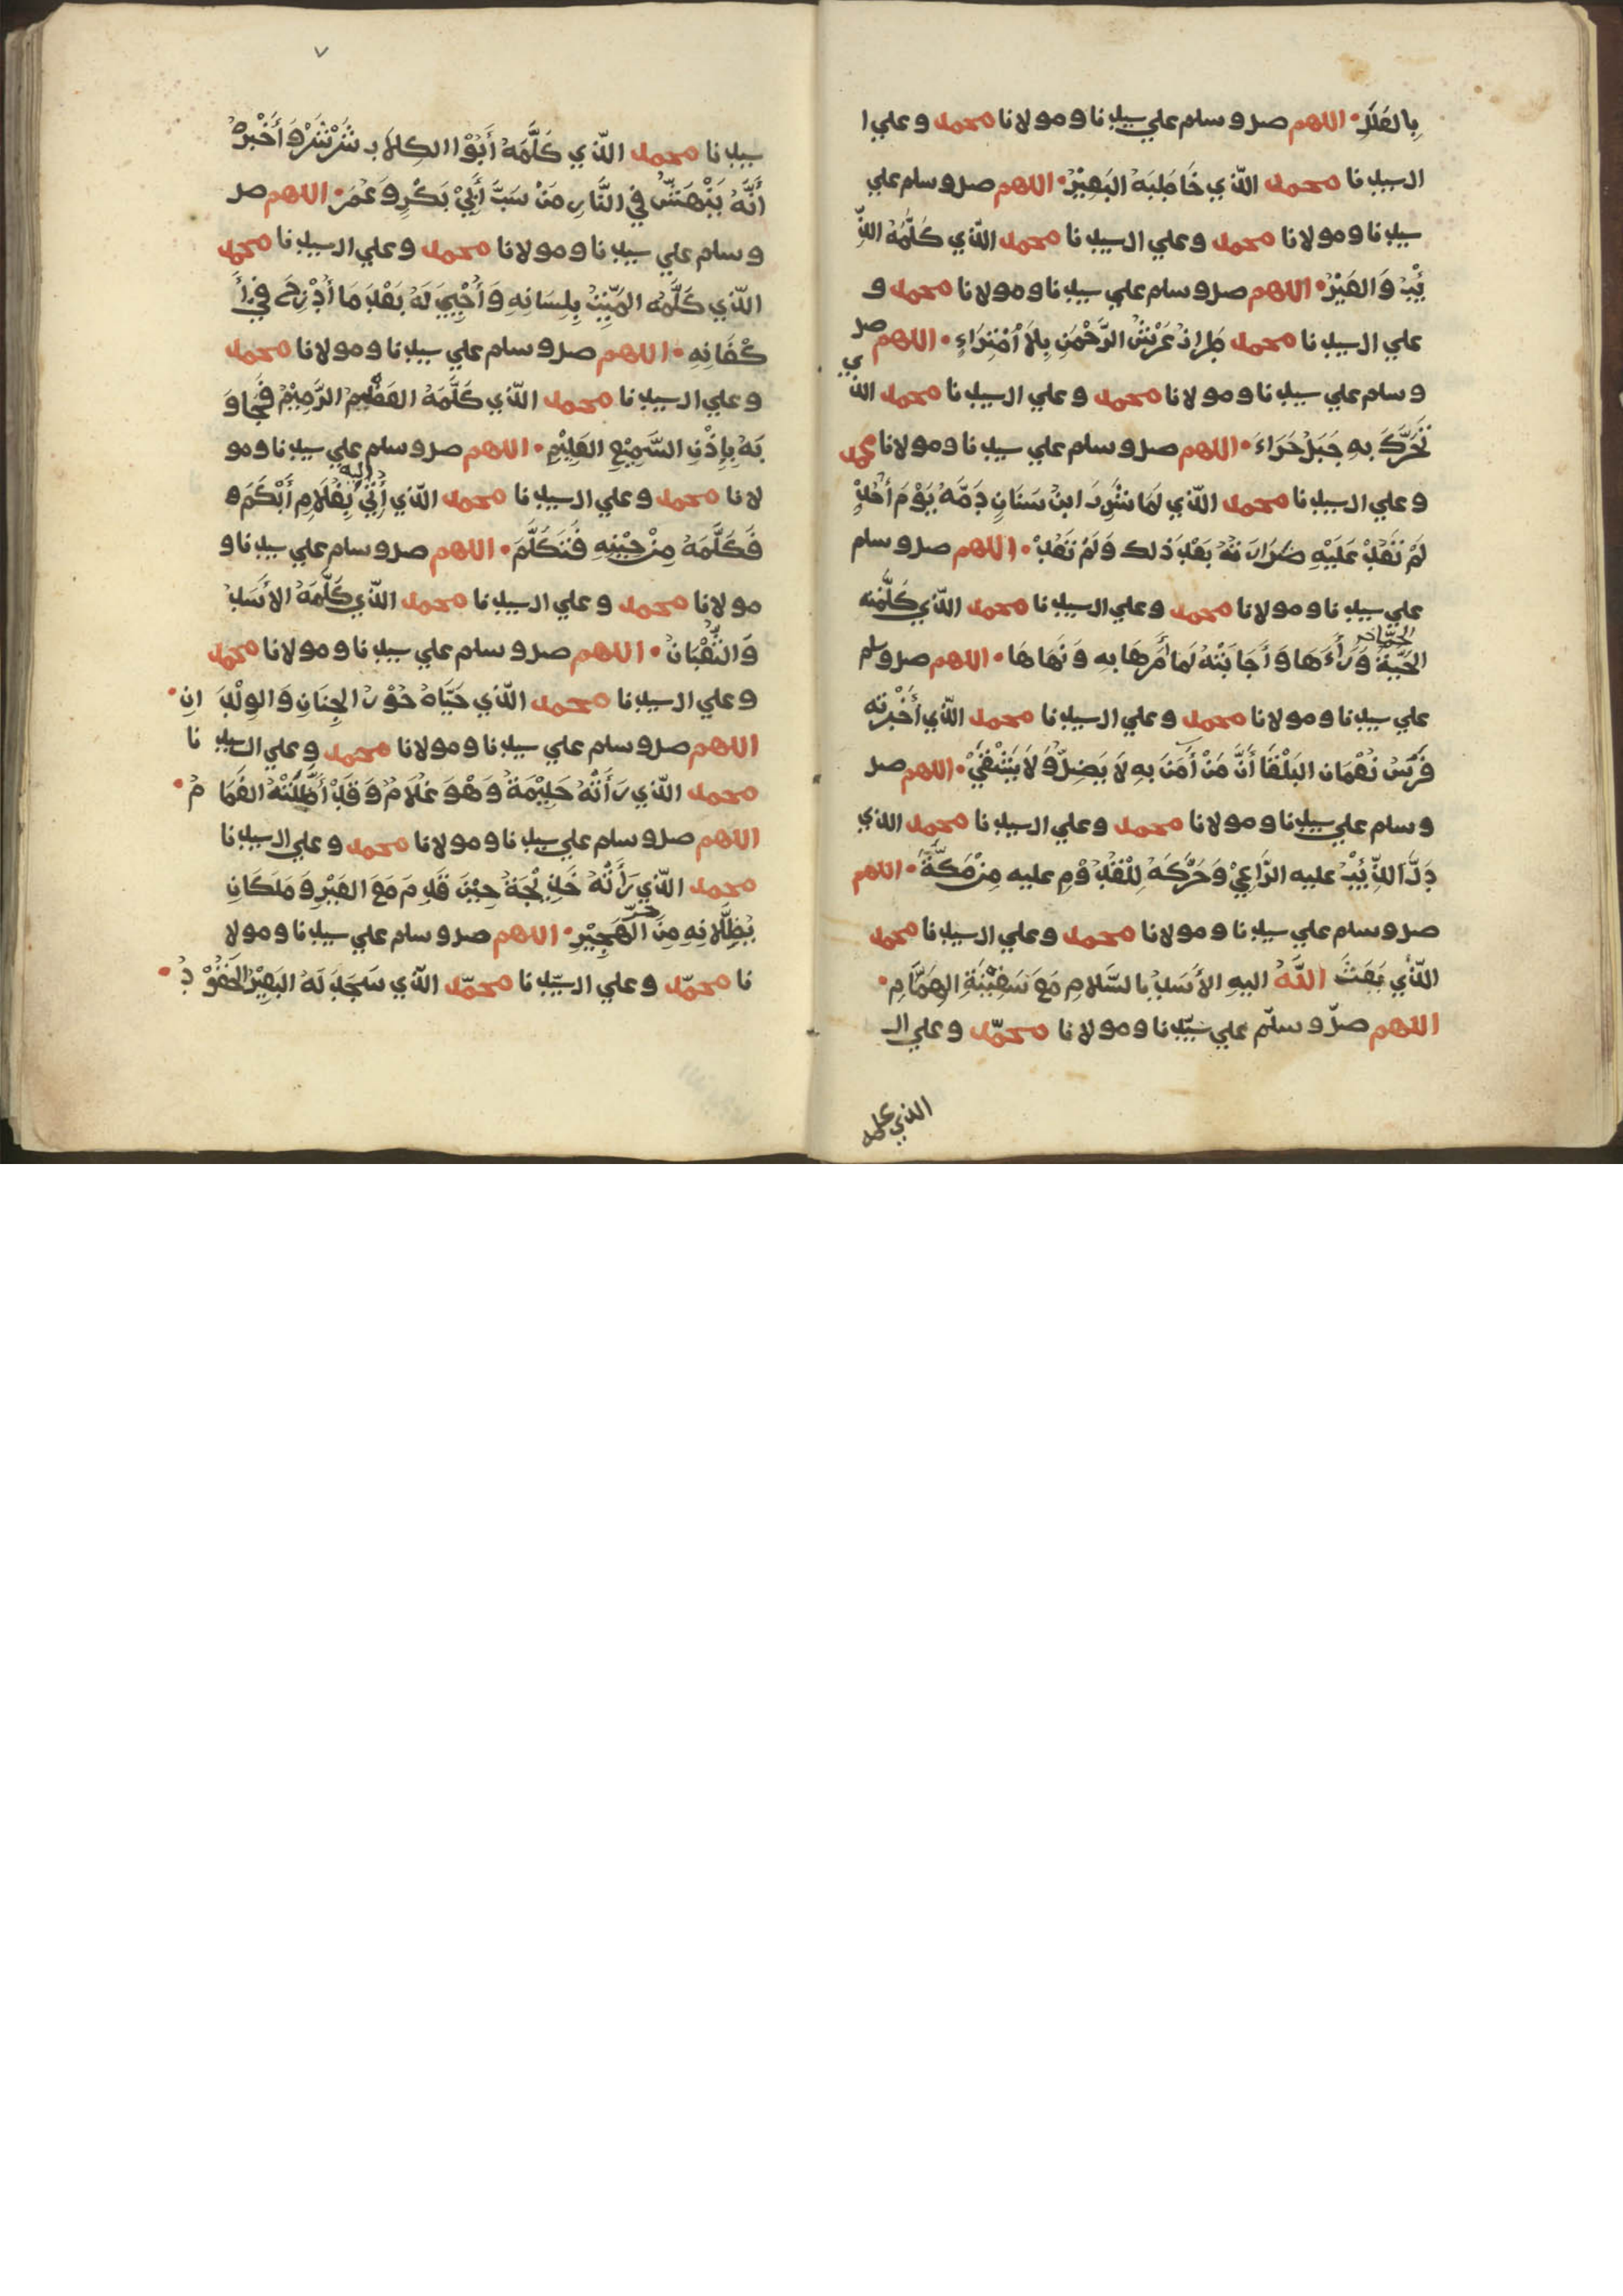 بِالعَدَدِ • اللهم صل وسلم علي سيدنا ومولانا محمد وعلي ا
ال سيدنا محمد الذي خَاطَبَهُ البَعِيْرُ • اللهم صل وسلم علي
سيدنا ومولانا محمد وعلي ال سيدنا محمد الذي كَلَّمَهُ الذِّ
ئْبُ وَالعَيْرُ • اللهم صل وسلم علي سيدنا ومولانا محمد و
علي ال سيدنا محمد طراز عَرْشُ الرَّحْمَنِ بِلَا اُمْتِرَاءٍ • اللهم صل
وسلم علي سيدنا ومولانا محمد وعلي ال سيدنا محمد الذي
تَحَرَّكَ بِهِ جَبَلُ حَرَاءَ • اللهم صل وسلم علي سيدنا ومولانا محمد
وعلي ال سيدنا محمد الذي لَمَا شَرِبَ ابنُ سَنَانٍ دَمَّهُ يَوْمَ أُحُدٍ
لَمْ تَعُدْ عَلَيْهِ ضَرَارَتُهُ بَعْدَ ذلك وَلَمْ تَعُدْ • اللهم صل وسلم
علي سيدنا ومولانا محمد وعلي ال سيدنا محمد الذي كَلَّمَتْهُ
الحَيَّةُ وَرَأَءَهَا وَأَجَابَتْهُ لَمَا أَمَرَهَا بِهِ وَنَهَاهَا • اللهم صل وسلم
علي سيدنا ومولانا محمد وعلي ال سيدنا محمد الذي أَخْبَرَتْهُ
فَرَسُ نُعْمَان البَلْقَا أَنَّ مَنْ أَمَنَ بِهِ لَا يَضِلُّ وَلَا يَشْقَيْ • اللهم صل
وسلم علي سيدنا ومولانا محمد وعلي ال سيدنا محمد الذي
دَلَّ الذِّئْبُ عليه الرَّاعِيْ وَحَرَّكَهُ لِلْقُدُوْمِ عليه مِنْ مَكَّةَ • اللهم
صل وسلم علي سيدنا ومولانا محمد وعلي ال سيدنا محمد
الذي بَعَثَ اللَّهُ اليهِ الأَسَدُ بالسَّلَامِ مَعَ سَفِيْنَةِ الهَمَّامِ •
اللهم صلّ وسلّم علي سيّدنا ومولانا محمّد وعلي ال
الذي كلمه
٧
سيدنا محمد الذي كَلَّمَهُ أَبُوْا الكِلَابِ شَرْشَرْ وَأَخْبَرَهُ
أَنَّهُ يَنْهَشُ في النَّارِ مَنْ سَبَّ أَبِيْ بَكْرٍ وَعُمَرَ • اللهم صل
وسلم علي سيدنا ومولانا محمد وعلي ال سيدنا محمد
الذي كَلَّمَهُ المَيِّتُ بِلِسَانِهِ وَأُحْيِيَ لَهُ بَعْدَ مَا أُدْرِجَ في أَ
كْفَانِهِ • اللهم صل وسلم علي سيدنا ومولانا محمد
وعلي ال سيدنا محمد الذي كَلَّمَهُ العَظْمُ الرَّمِيْمُ فَجَاوَ
بَهُ بِإِذْنِ السَّمِيْعِ العَلِيْمِ • اللهم صل وسلم علي سيدنا ومو
لانا محمد وعلي ال سيدنا محمد الذي أُتِيَ اليه بِغُلَامٍ أَبْكَمَ و
فَكَلَّمَهُ مِنْ حِيْنِهِ فَتَكَلَّمَ • اللهم صل وسلم علي سيدنا و
مولانا محمد وعلي ال سيدنا محمد الذي كَلَّمَهُ الأَسَدُ
وَالثُّعْبَانُ • اللهم صل وسلم علي سيدنا ومولانا محمد
وعلي ال سيدنا محمد الذي حَيَّاهُ حُوْرُ الجِنَانِ وَالوِلْدَانِ •
اللهم صل وسلم علي سيدنا ومولانا محمد وعلي ال سيدنا
محمد الذي رَأَتْهُ حَلِيْمَةُ وَهْوَ غُلَامٌ وَقَدْ أَظَلَّتْهُ الغَمَامُ •
اللهم صل وسلم علي سيدنا ومولانا محمد وعلي ال سيدنا
محمد الذي رَأَتْهُ خَدِيْجَةُ حِيْنَ قَدِمَ مَعَ العَيْرِ وَمَلَكَانِ
يُظِلَّانِهِ مِنَ حَرّ الهَجِيْرِ • اللهم صل وسلم علي سيدنا ومولا
نا محمّد وعلي ال سيّدنا محمّد الذي سَجَدَ لَهُ البَعِيْرُ الحَقُوْدُ •